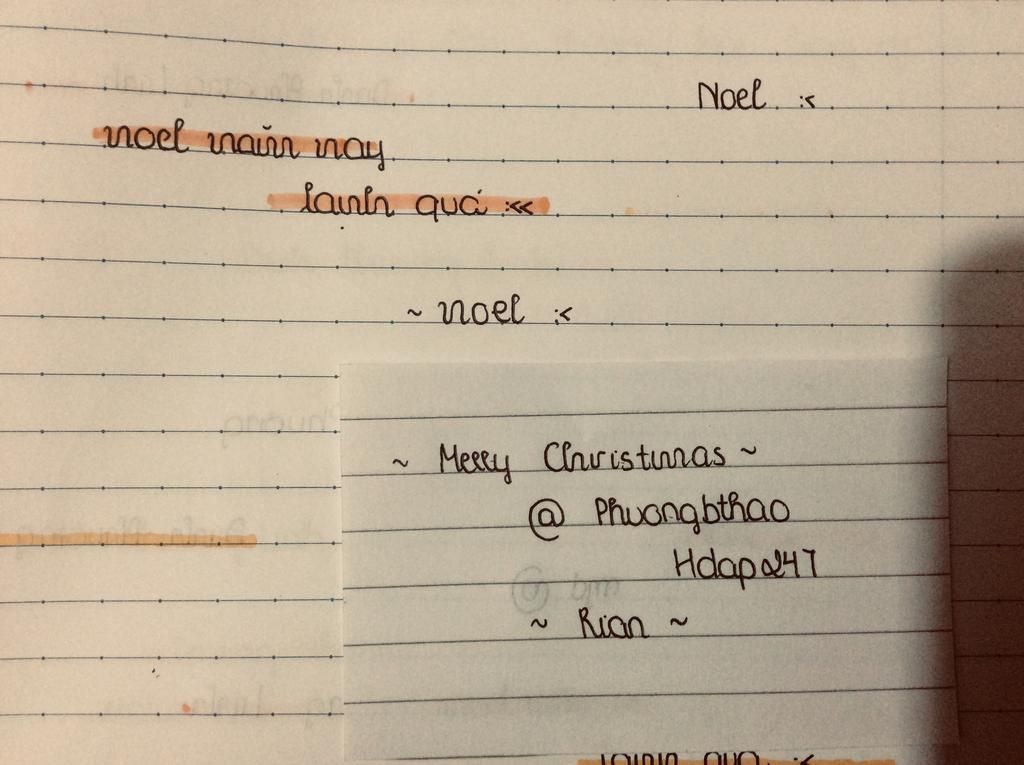 Noel :<
noel năm nay
lạnh quá :<<
~ noel :<
~ Merry Christmas ~
@ Phuongbthao
Hdap247
~ Rian ~
lạnh quá :<